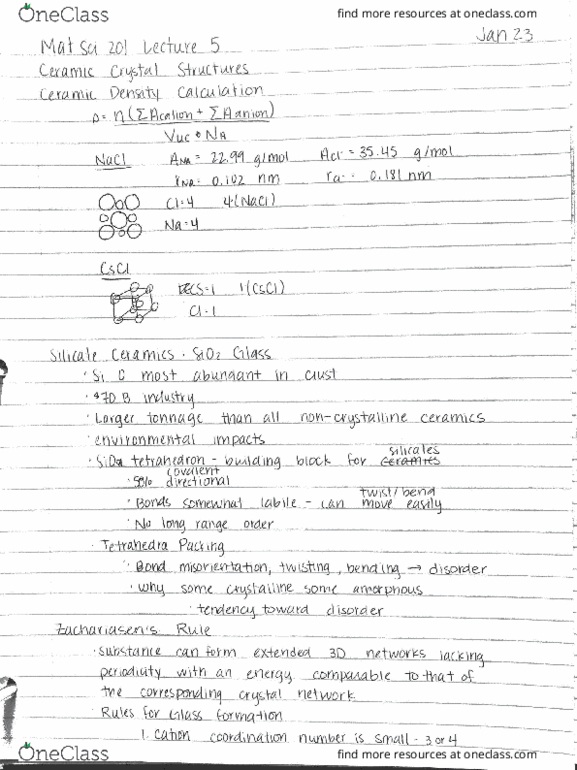 OneClass
find more resources at oneclass.com
Jan 23
Mat Sci 201 Lecture 5
Ceramic Crystal Structures
Ceramic Density Calculation
ρ = n(ΣAcation + ΣAanion)
Vuc • NA
NaCl
ANa = 22.99 g/mol
ACl = 35.45 g/mol
rNa = 0.102 nm
0.181 nm
Cl=4
4(NaCl)
Na=4
CsCl
Cs=1
1(CsCl)
Cl=1
Silicate Ceramics · SiO2 Glass
· Si most abundant in crust
· $70 B industry
· Larger tonnage than all non-crystalline ceramics
· environmental impacts
silicates
tetrahedron - building block for ceramics
covalent
directional
twist/bend
· Bonds somewhat labile - can move easily
· No long range order
· Tetrahedra Packing
· Bond misorientation, twisting, bending → disorder
· why some crystalline some amorphous
· tendency toward disorder
Zachariasen's Rule
· substance can form extended 3D networks lacking
periodicity with an energy comparable to that of
the corresponding crystal network
· Rules for Glass formation
1. cation coordination number is small - 3 or 4
OneClass
find more resources at oneclass.com